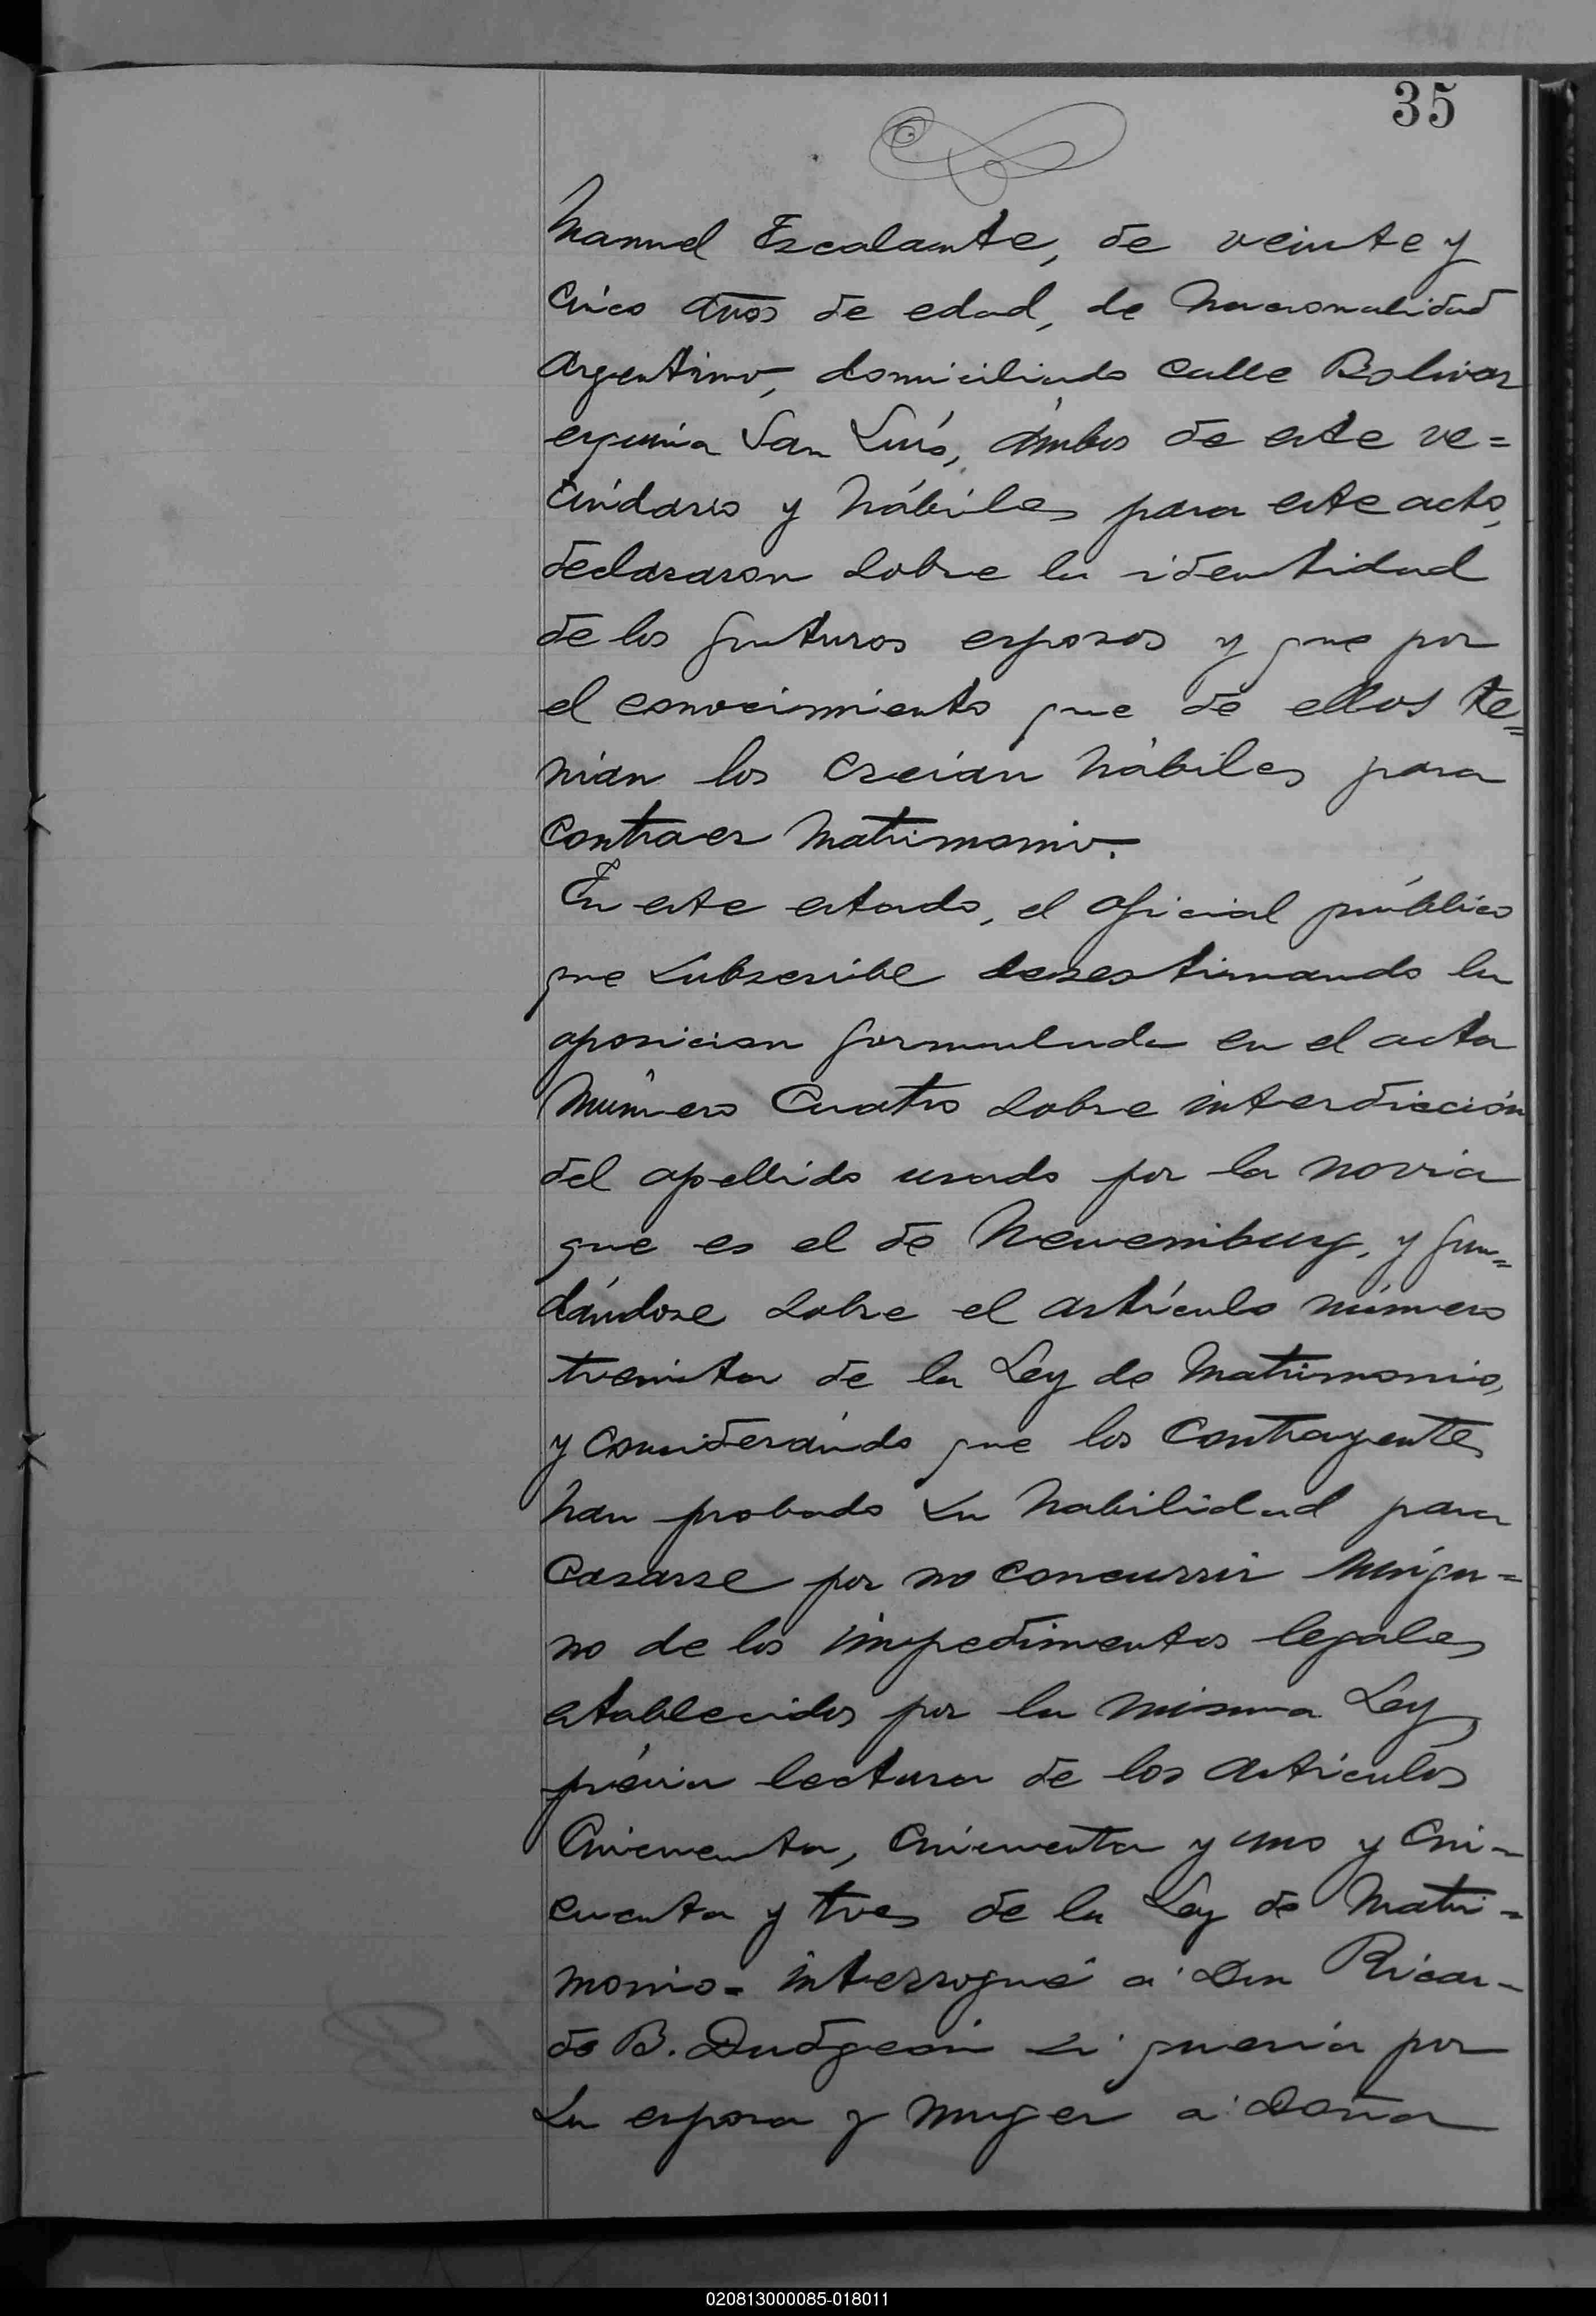 35
Manuel Escalante, de veinte y
cinco años de edad, de nacionalidad
argentino, domiciliado calle Bolivar
esquina San Luis, ámbos de este ve=
cindario y hábiles para este acto,
declararon sobre la identidad
de los futuros esposos y que por
el conocimiento que de ellos te=
nian los creían hábiles para
contraer matrimonio.
En este estado, el oficial público
que subscribe desestimando la
oposicion formulada en el acta
número cuatro sobre interdicción
del apellido usado por la novia
que es el de Newenburg, y fun=
dándose sobre el artículo número
treinta de la Ley de Matrimonio,
y considerándo que los contrayentes
han probado su habilidad para
casarse por no concurrir ningu=
no de los impedimentos legales
establecidos por la misma Ley,
prévia lectura de los artículos
cincuenta, cincuenta y uno y cin-
cuenta y tres de la Ley de Matri=
monio= interrogué á Don Ricar-
do B. Dudgeon si quería por
su esposa y muger á Doña
020813000085-018011